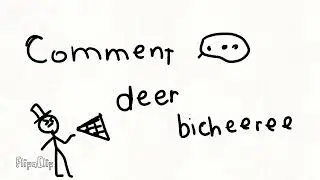 Comment
deer
bicheeree
FlipaClip